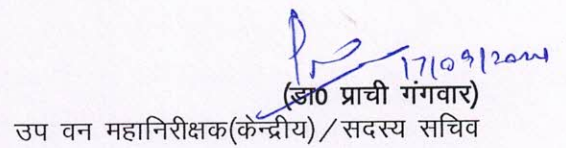 17/09/2024
(डा0 प्राची गंगवार)
उप वन महानिरीक्षक(केन्द्रीय)/सदस्य सचिव